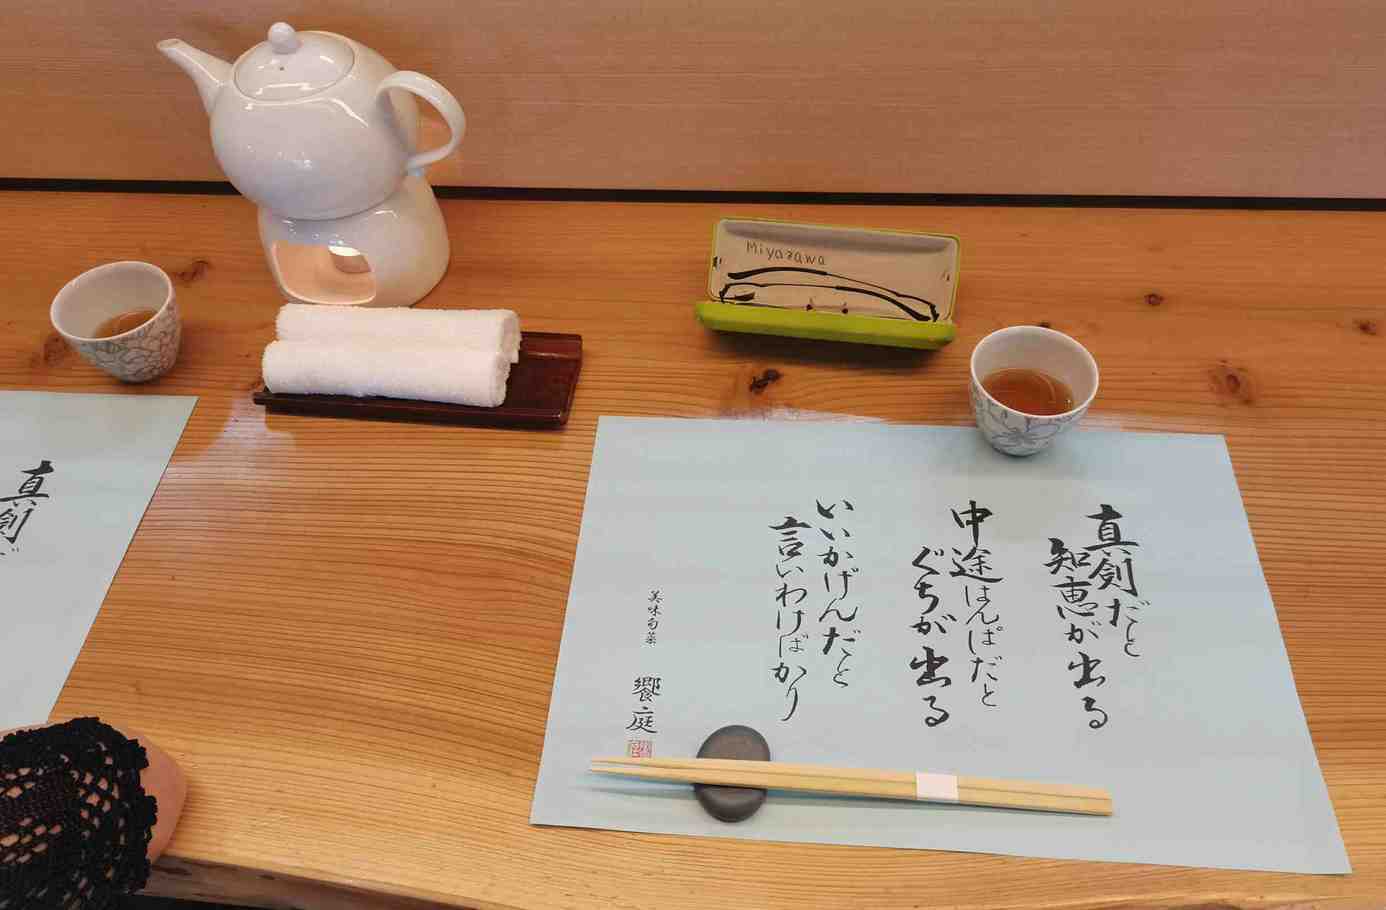 Miyazawa
真剣だと
知恵が出る
中途はんぱだと
ぐちが出る
いいかげんだと
言いわけばかり
美味旬菜
饗庭
真剣だ